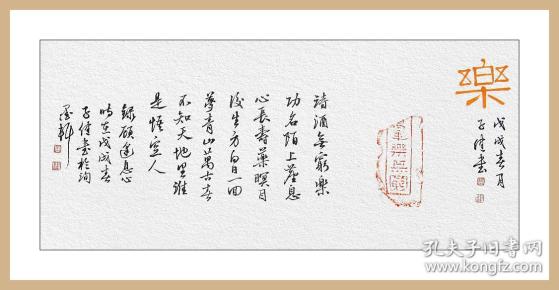 樂
戊戌春月
子健書
詩酒無窮樂
功名陌上塵息
心長壽藥瞑目
後生方白日一回
夢青山萬古春
不知天地裏誰
是悟空人
錄願逢息心
時在戊戌春
子健書於洵
孔夫子旧书网
kongfz.com
孔夫子旧书网
www.kongfz.com